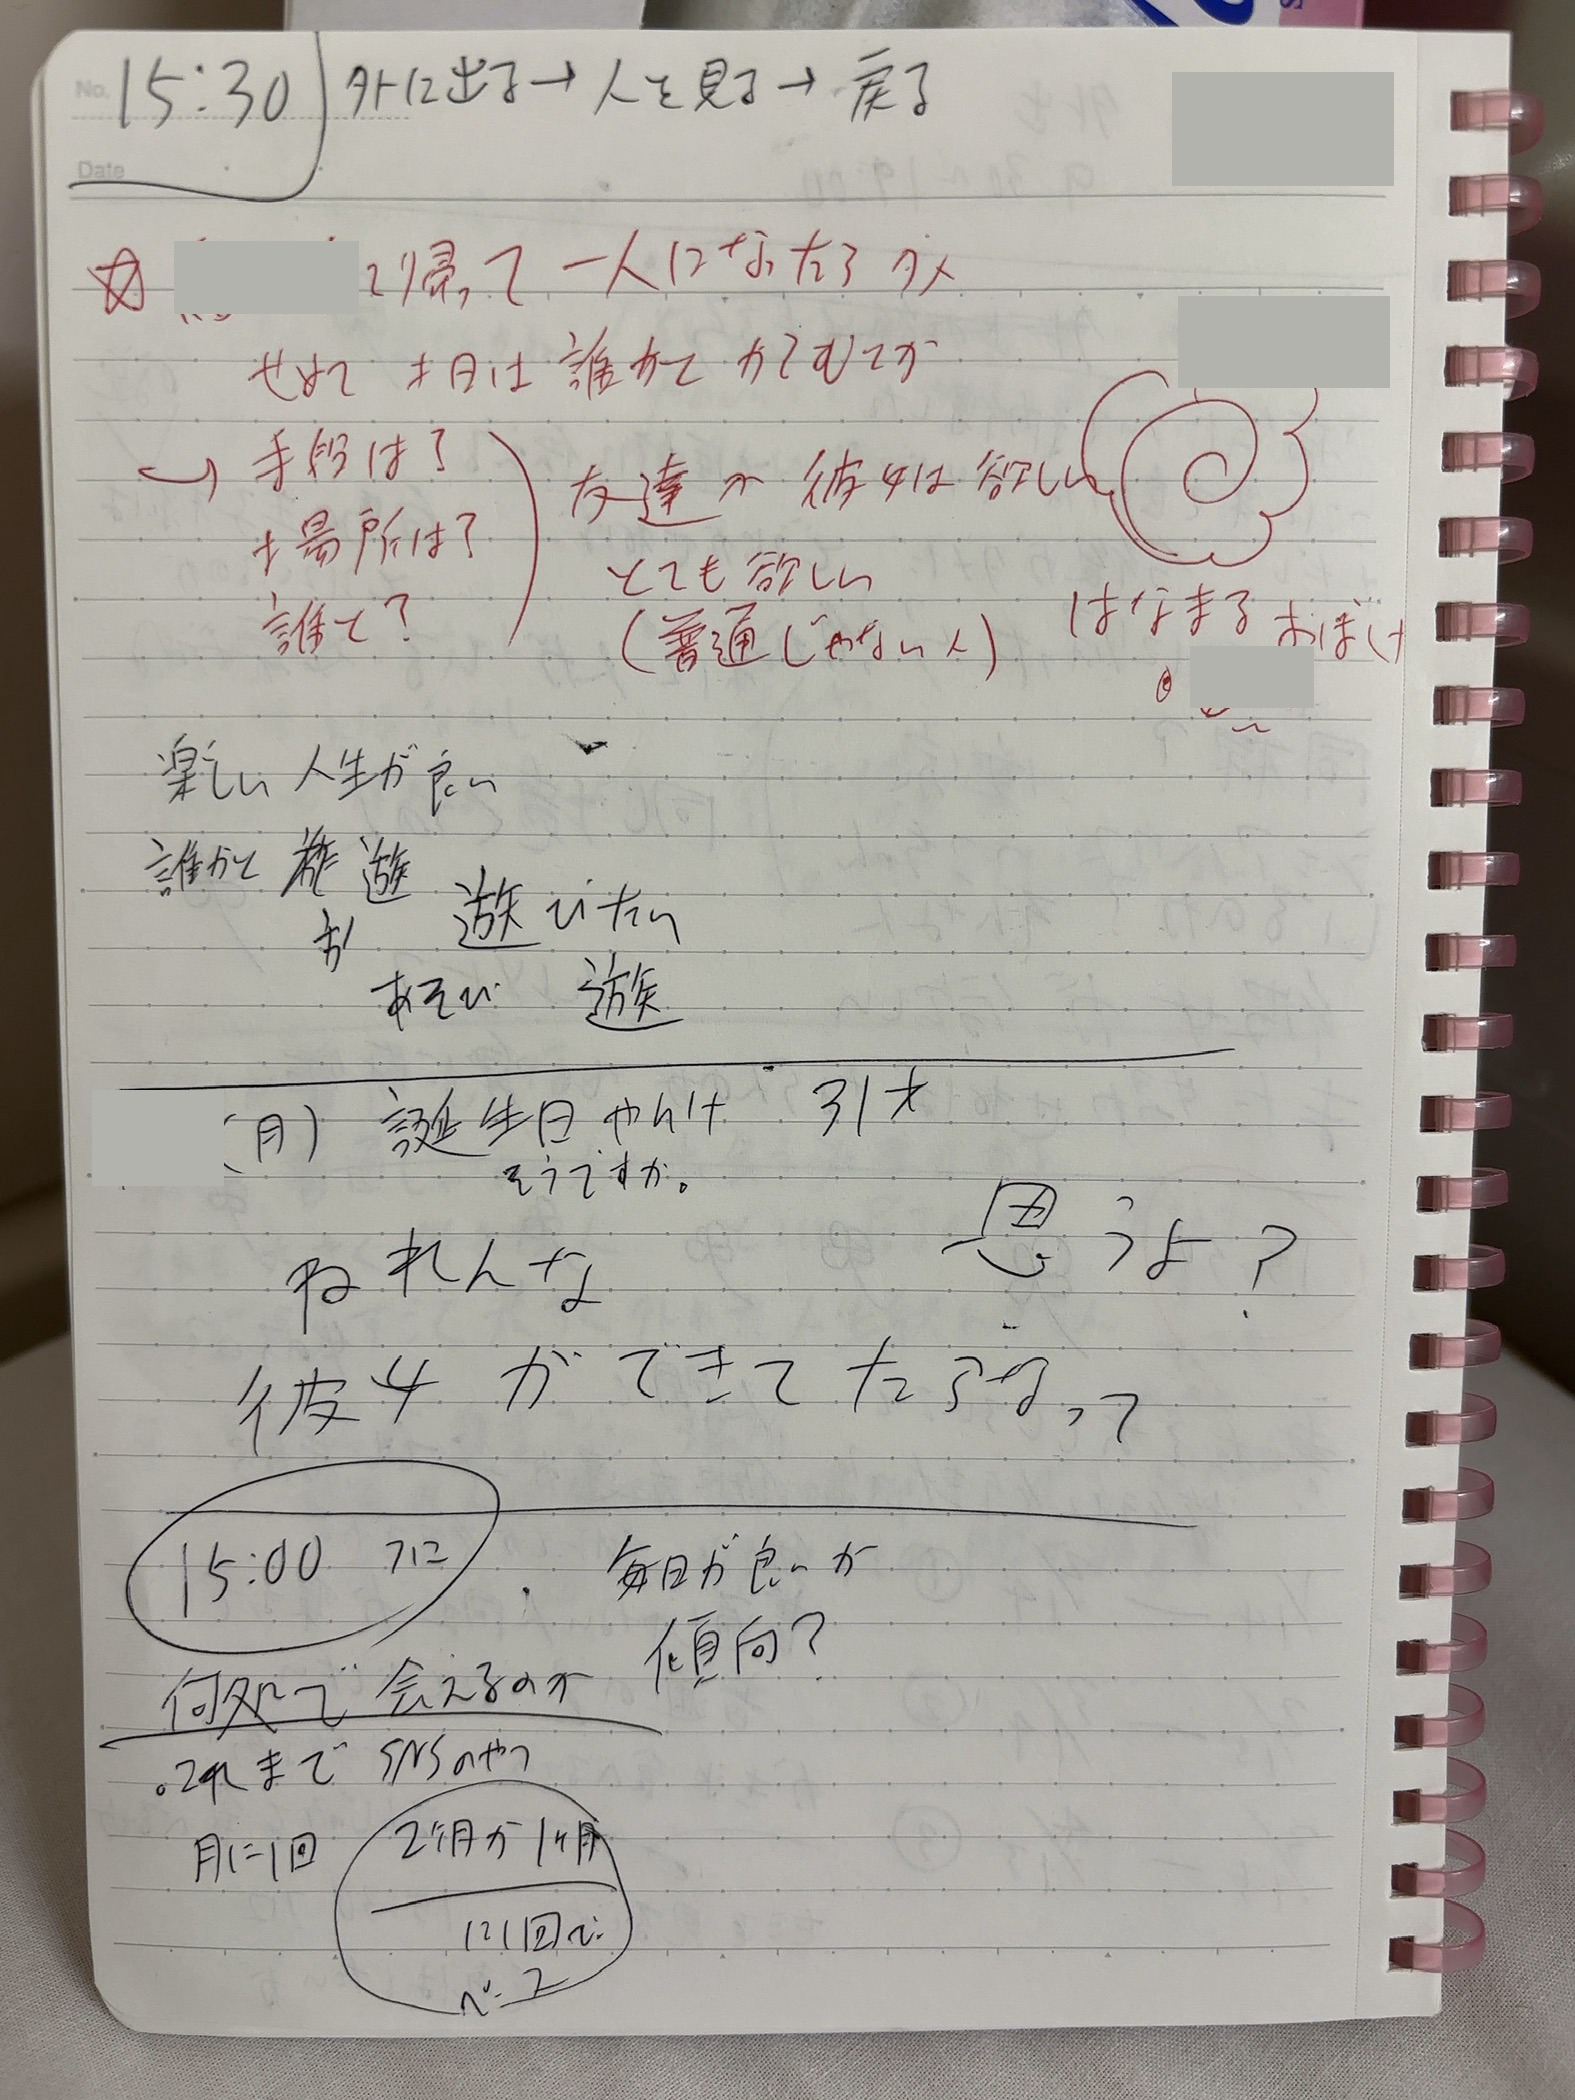 No.
15:30 外に出る→人を見る→戻る
Date
帰って一人になったらダメ
せめて土日は誰かと
手段は?
場所は?
誰と?
友達か彼女は欲しい
とても欲しい
(普通じゃない人)
はなまる おばけ
楽しい人生が良い
誰かと 遊
遊びたい
あそび 遊
(月) 誕生日やんけ 31才
そうですか。
ねれんな 思うよ?
彼女ができてたらなって
15:00
毎日が良いか
傾向?
何処で会えるのか
。これまで SNSのやつ
月に1回
2ヶ月か1ヶ月
に1回で
ペース